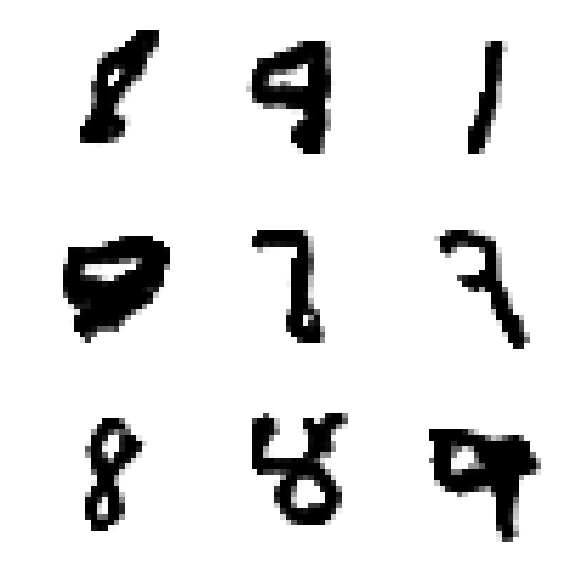 8 9 1
0 7 7
8 8 9